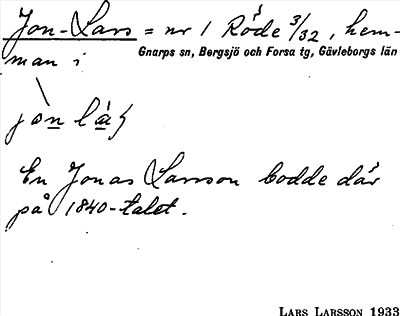 Jon-Lars = nr 1 Röde 3/32, hem-
man i Gnarps sn, Bergsjö och Forsa tg, Gävleborgs län
En Jonas Larsson bodde där
på 1840-talet.
LARS LARSSON 1933